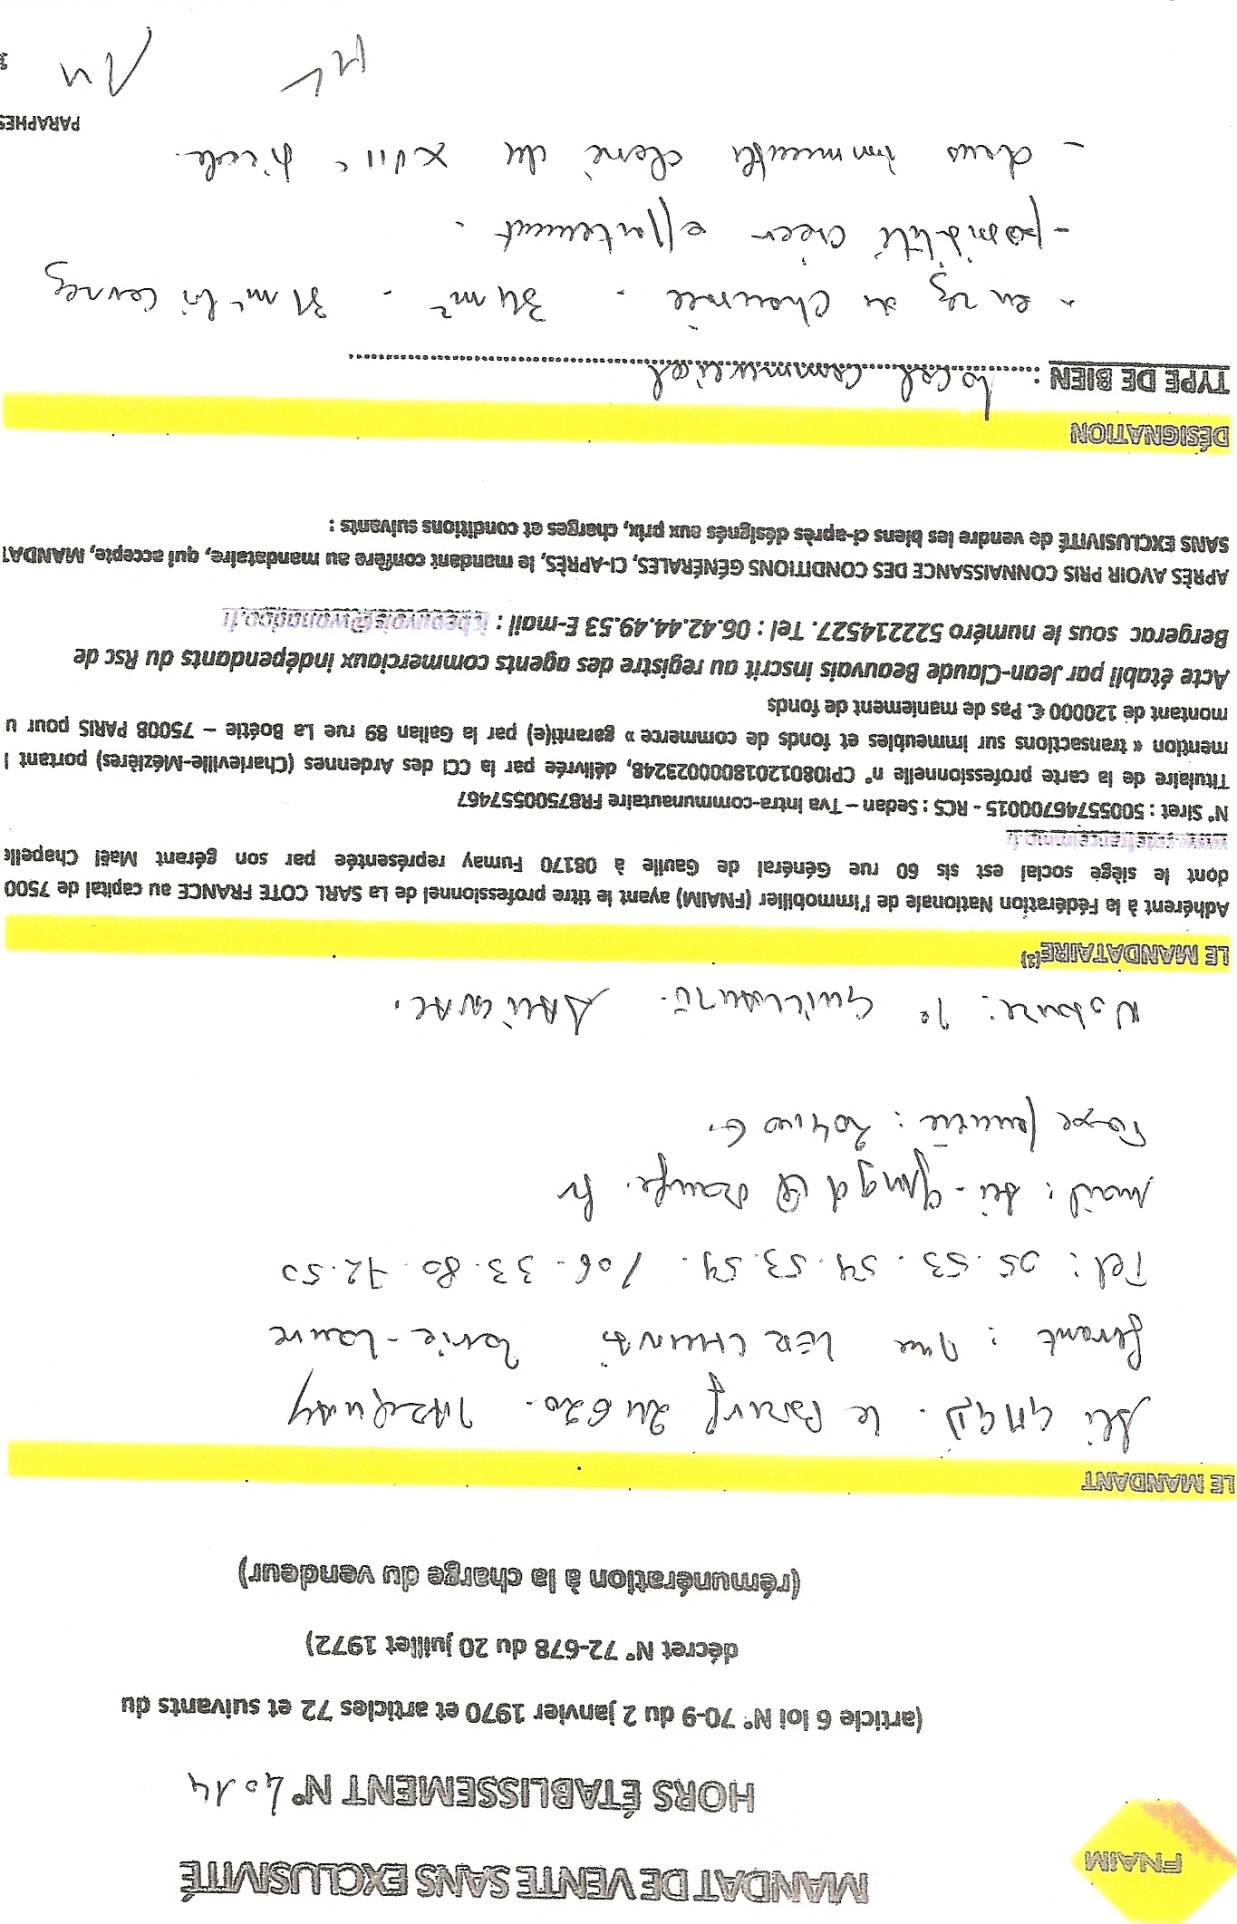 FNAIM
MANDAT DE VENTE SANS EXCLUSIVITÉ
HORS ÉTABLISSEMENT N° 4014
(article 6 loi N° 70-9 du 2 janvier 1970 et articles 72 et suivants du
décret N° 72-678 du 20 juillet 1972)
(rémunération à la charge du vendeur)
LE MANDANT
Sci GMGD. le Bourg 24620.
Gérant : Mme
Tel : 05.53.54.53.59. / 06.33.80.72.50
mail : sci-gmgd@orange.fr
Taxe foncière :
Notaire : Me Guillaume.
LE MANDATAIRE(2)
Adhérent à la Fédération Nationale de l'immobilier (FNAIM) ayant le titre professionnel de La SARL COTE FRANCE au capital de 7500
dont le siège social est sis 60 rue Général de Gaulle à 08170 Fumay représentée par son gérant Maël Chapelle
www.cotefranceimmo.fr
N° Siret : 50055746700015 - RCS : Sedan – Tva intra-communautaire FR87500557467
Titulaire de la carte professionnelle n° CPI08012018000023248, délivrée par la CCI des Ardennes (Charleville-Mézières) portant l
mention « transactions sur immeubles et fonds de commerce » garanti(e) par la Galian 89 rue La Boétie – 75008 PARIS pour u
montant de 120000 €. Pas de maniement de fonds
Acte établi par Jean-Claude Beauvais inscrit au registre des agents commerciaux indépendants du Rsc de
Bergerac sous le numéro 522214527. Tel : 06.42.44.49.53 E-mail :
APRÈS AVOIR PRIS CONNAISSANCE DES CONDITIONS GÉNÉRALES, CI-APRÈS, le mandant confère au mandataire, qui accepte, MANDAT
SANS EXCLUSIVITÉ de vendre les biens ci-après désignés aux prix, charges et conditions suivants :
DÉSIGNATION
TYPE DE BIEN : local commercial
- en rez de chaussée . 34 m² . 31 m² loi Carrez
- possibilité créer appartement .
- dans immeuble rénové du XVIIIe siècle.
PARAPHES